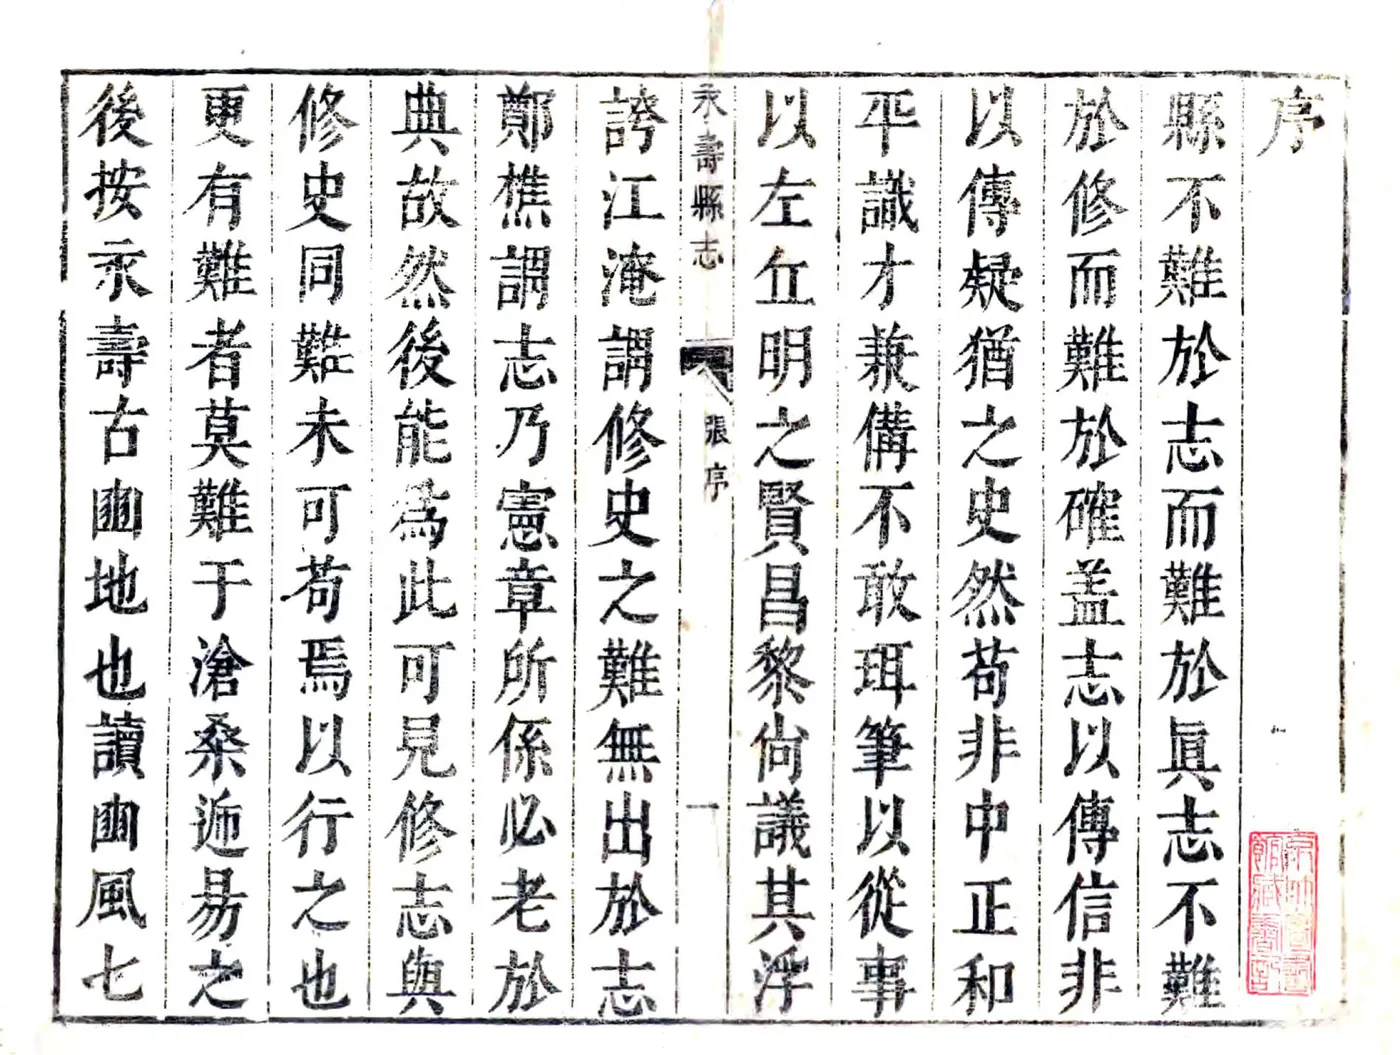 序
縣不難於志而難於眞志不難
於修而難於確盖志以傳信非
以傳疑猶之史然苟非中正和
平識才兼備不敢珥筆以從事
以左丘明之賢昌黎尙議其浮
誇江淹謂修史之難無出於志
鄭樵謂志乃憲章所係必老於
典故然後能爲此可見修志與
修史同難未可苟焉以行之也
更有難者莫難于滄桑遞易之
後按永壽古豳地也讀豳風七
永壽縣志
張序
一